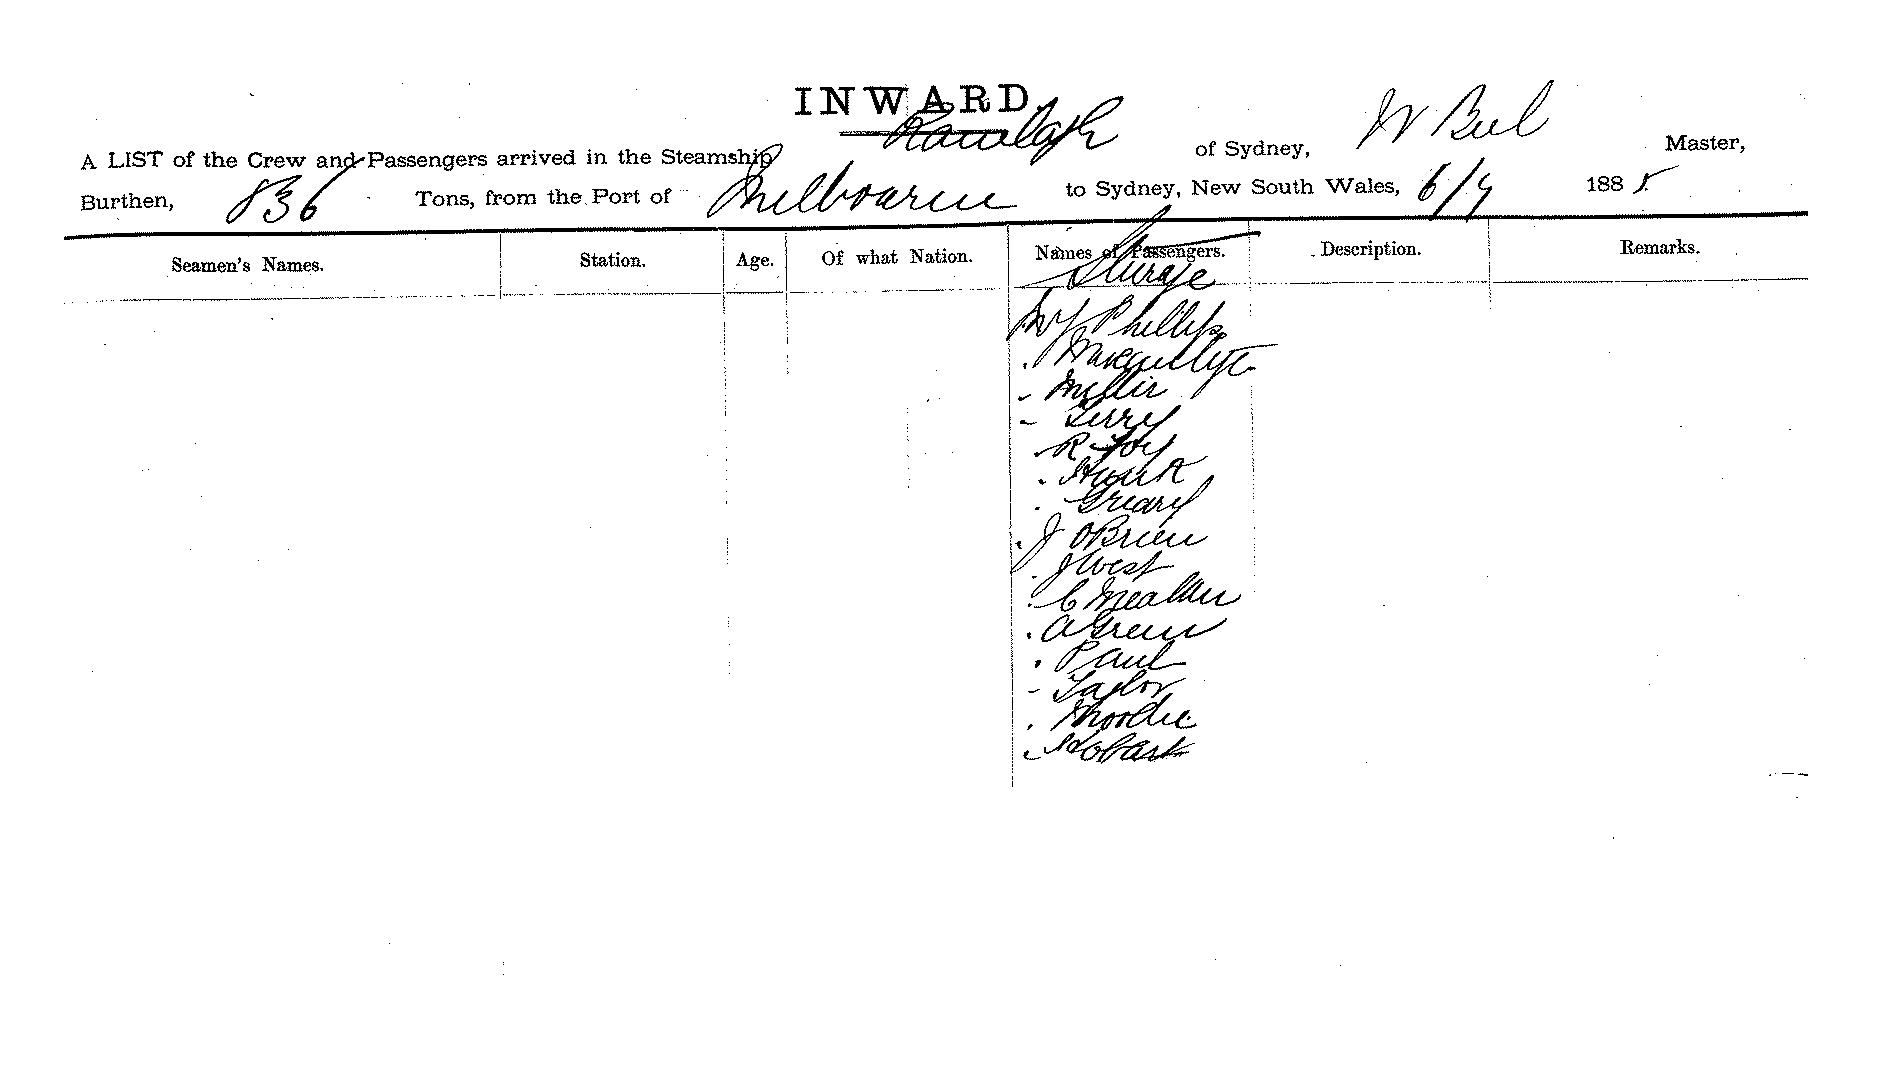 INWARD
A LIST of the Crew and Passengers arrived in the Steamship Ranelagh of Sydney, W Bell Master,
Burthen, 836 Tons, from the Port of Melbourne to Sydney, New South Wales, 6/9 1885
Seamen's Names. Station. Age. Of what Nation. Names of Passengers. Description. Remarks.
Steerage
Phillips
Terry
R Foy
J OBrien
J West
C
A Green
Paul
Taylor
Moodie
Hobart